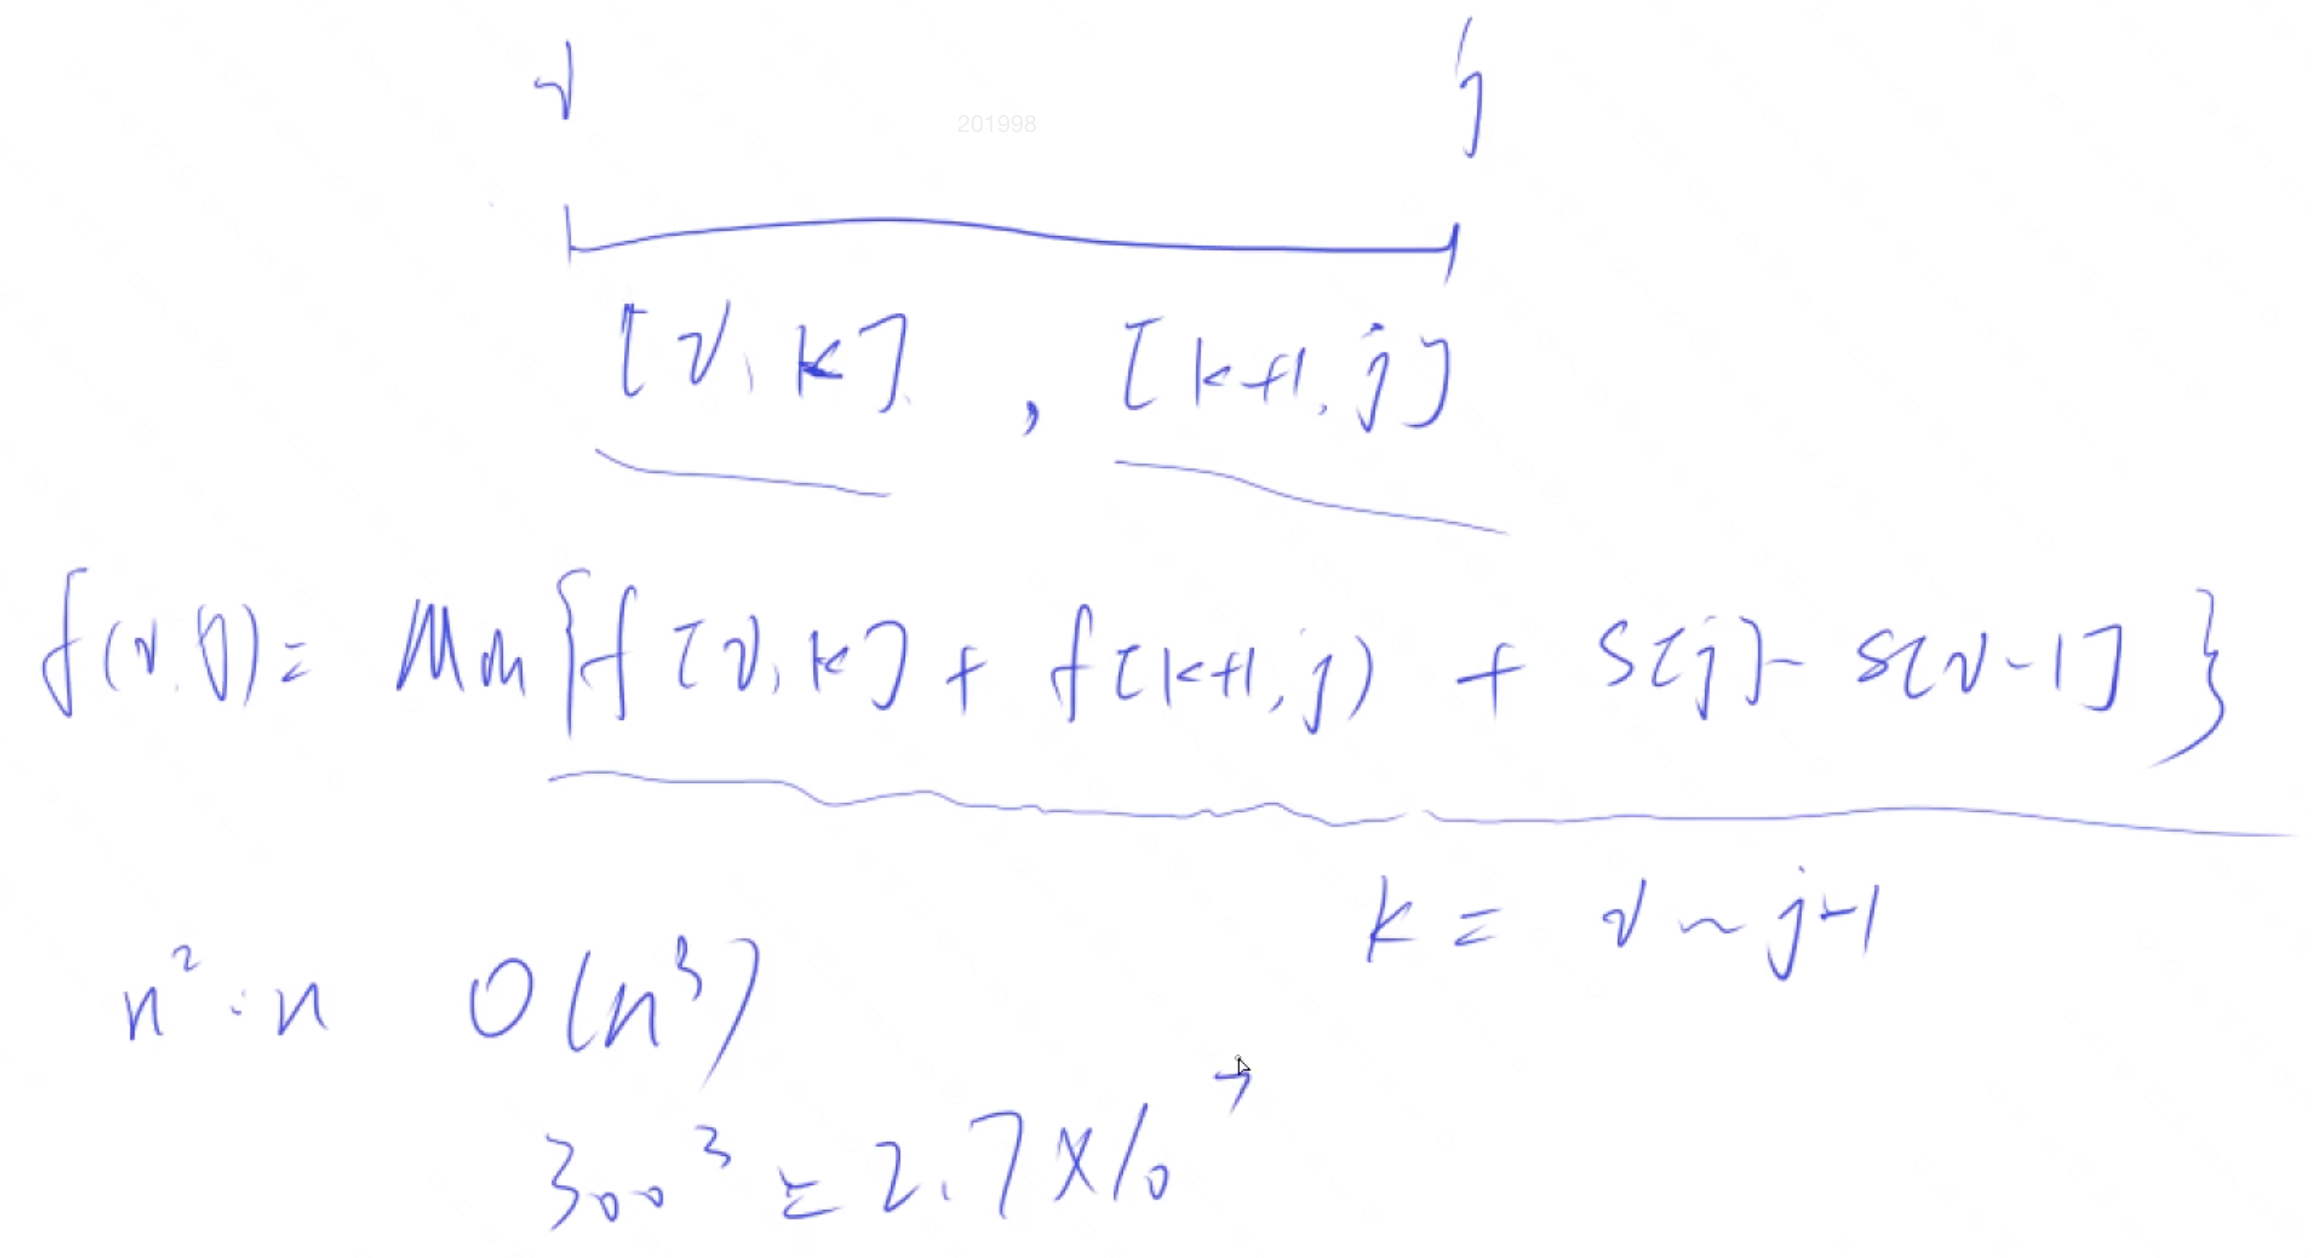 i j
201998
[i, k], [k+1, j]
f(i,j) = Min{f[i,k] + f[k+1,j) + S[j] - S[i-1]}
k = i ~ j-1
n² · n O(n³)
300³ = 2.7×10⁷